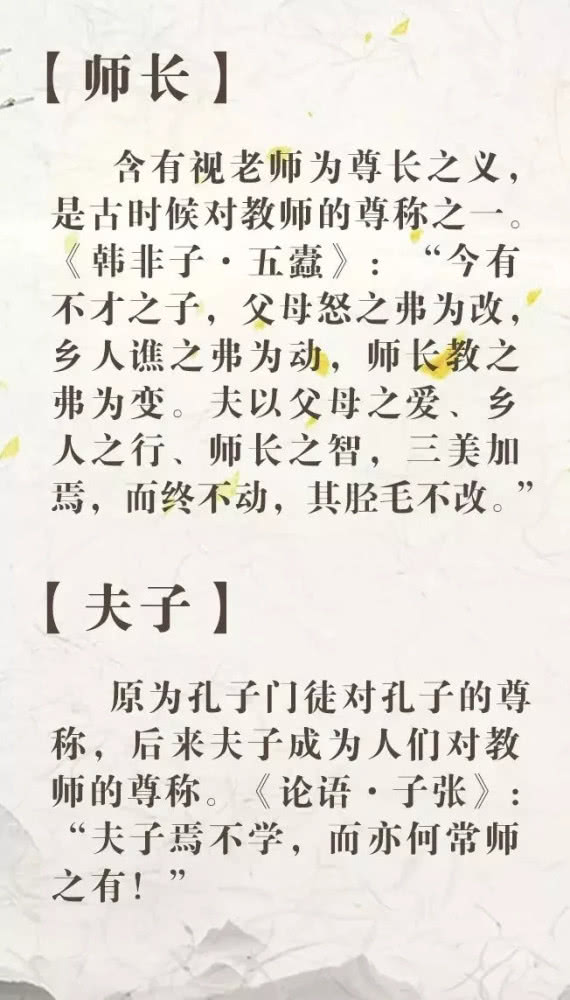 【师长】
含有视老师为尊长之义，
是古时候对教师的尊称之一。
《韩非子·五蠹》：“今有
不才之子，父母怒之弗为改，
乡人谯之弗为动，师长教之
弗为变。夫以父母之爱、乡
人之行、师长之智，三美加
焉，而终不动，其胫毛不改。”
【夫子】
原为孔子门徒对孔子的尊
称，后来夫子成为人们对教
师的尊称。《论语·子张》：
“夫子焉不学，而亦何常师
之有！”